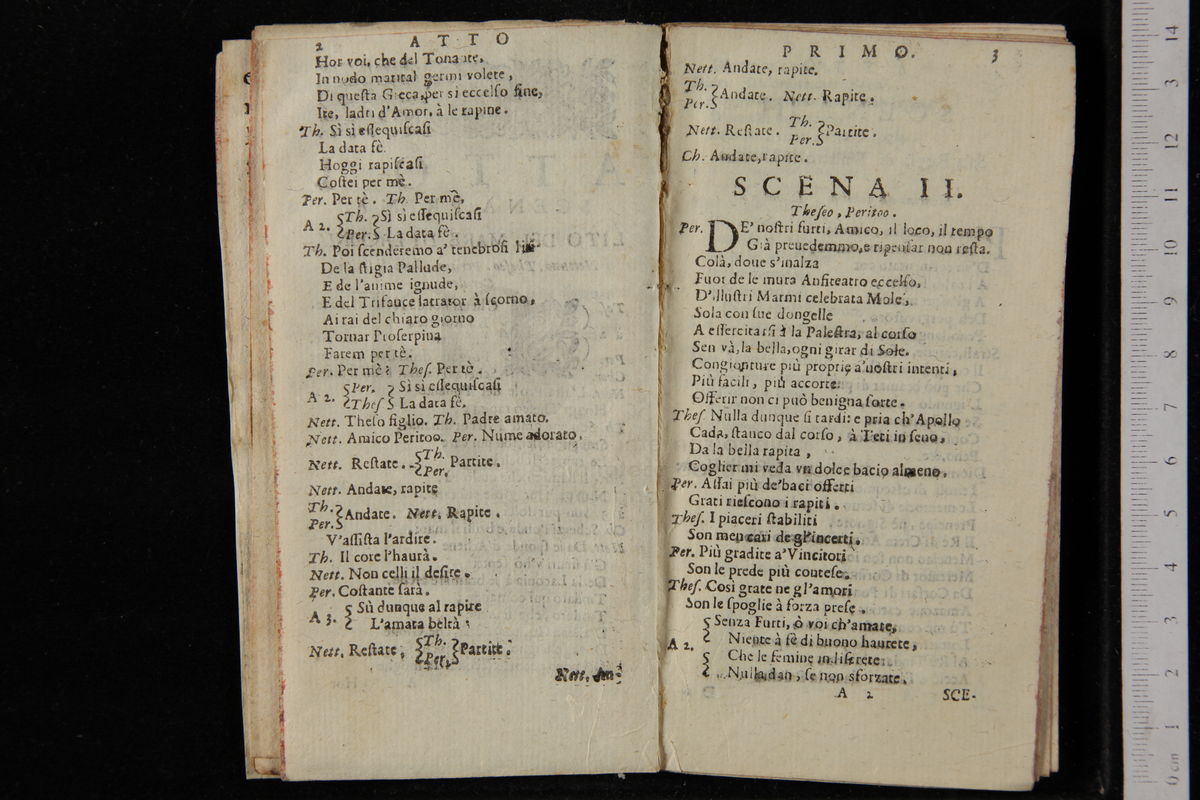 2 ATTO
Hor voi, che del Tonante,
In nodo marital germi volete,
Di questa Greca, per si eccelso fine,
Ite, ladri d'Amor, à le rapine.
Th. Sì sì essequiscasi
La data fè.
Hoggi rapiscasi
Costei per mè.
Per. Per tè. Th. Per mè,
A 2. Th. Per. Sì sì essequiscasi
La data fè.
Th. Poi scenderemo a' tenebrosi
De la stigia Pallude,
E de l'anime ignude,
E del Trifauce latrator à scorno,
Ai rai del chiaro giorno
Tornar Proserpina
Farem per tè.
Per. Per mè? Thes. Per tè.
A 2. Per. Thes Sì sì essequiscasi
La data fè.
Nett. Theseo figlio. Th. Padre amato.
Nett. Amico Peritoo. Per. Nume adorato.
Nett. Restate. Th. Per. Partite.
Nett. Andate, rapite
Th. Per. Andate. Nett. Rapite.
V'assista l'ardire.
Th. Il core l'haurà.
Nett. Non celli il desire.
Per. Costante sarà.
A 3. Sù dunque al rapire
L'amata beltà
Nett. Restate, Th. Per. Partite.
Nett. An-
PRIMO. 3
Nett. Andate, rapite.
Th. Per. Andate. Nett. Rapite.
Nett. Restate. Th. Per. Partite.
Ch. Andate, rapite.
SCENA II.
Theseo, Peritoo.
Per. DE' nostri furti, Amico, il loco, il tempo
Già preuedemmo, e ripensar non resta.
Colà, doue s'inalza
Fuor de le mura Anfiteatro eccelso,
D'illustri Marmi celebrata Mole,
Sola con sue dongelle
A essercitarsi à la Palestra, al corso
Sen và, la bella, ogni girar di Sole.
Congionture più proprie a' nostri intenti,
Più facili, più accorte
Offerir non ci può benigna sorte.
Thes Nulla dunque si tardi: e pria ch'Apollo
Cada, stanco dal corso, à Teti in seno,
Da la bella rapita,
Coglier mi veda vn dolce bacio almeno.
Per. Assai più de' baci offerti
Grati riescono i rapiti.
Thes. I piaceri stabiliti
Son men cari de gl'incerti.
Per. Più gradite a' Vincitori
Son le prede più contese.
Thes. Così grate ne gl'amori
Son le spoglie à forza prese.
A 2. Senza Furti, ò voi ch'amate,
Niente à fè di buono haurete,
Che le femine indiscrete
Nulla dan, se non sforzate.
A 2 SCE-